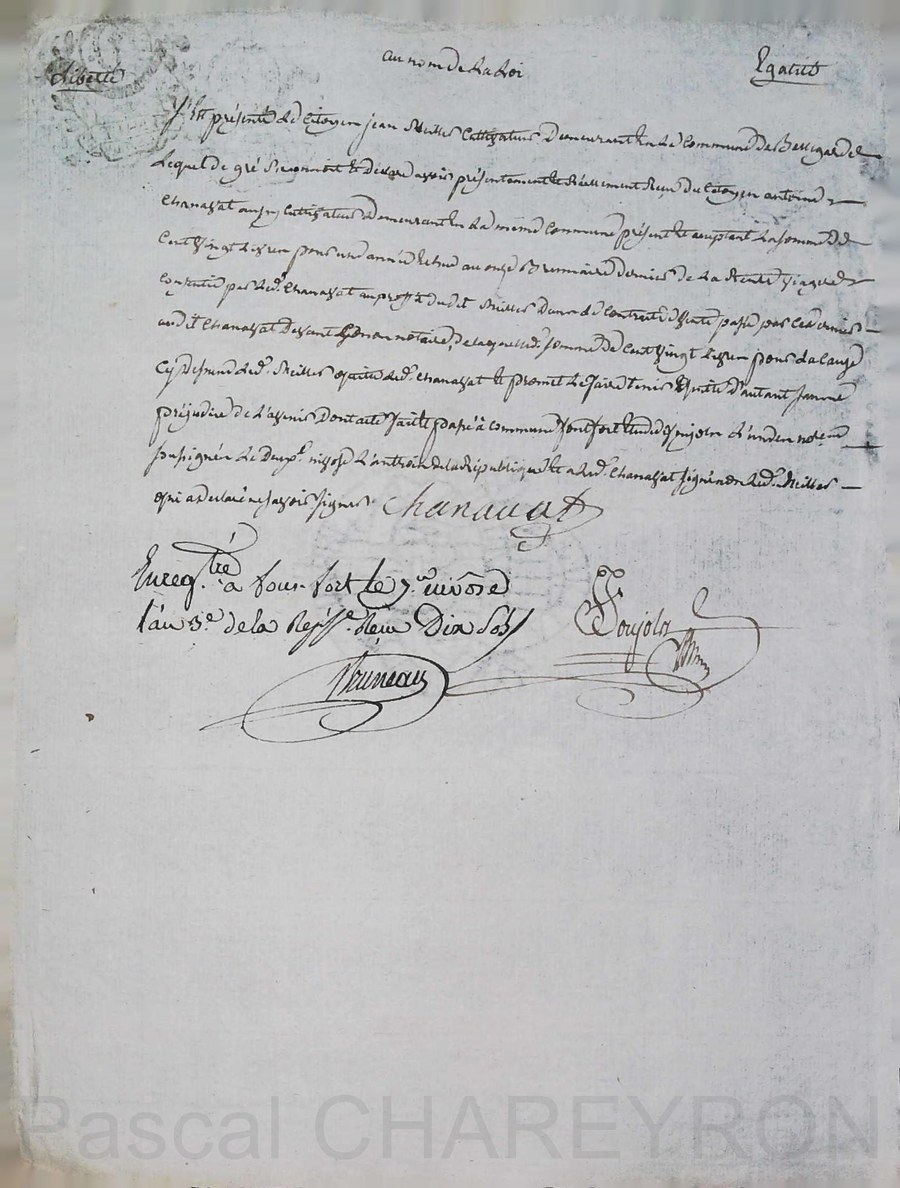 Liberté au nom de La Loi Egalité
S'Est présenté Le Citoyen jean Meiller Cultivateur Demeurant En La Commune De Bellegarde
Lequel de gré Reconnoit Et Declare avoir présentement Et Réellement Reçu Du Citoyen antoine
Chanavat aussy Cultivateur Demeurant En La même Commune présent Et acceptant La somme De
Cent Vingt Livres pour une année Echue au onze Brumaire dernier de La Rente Viagere
par Led. Chanavat au proffit dudit Meiller Dans Le Contrat de Vente passé par
audit Chanavat Devant notaire, De Laquelle d. somme De Cent Vingt Livres pour La Cause
Cy Dessus Led. Meiller quitte Led. Chanavat Et promet Le faire tenir quitte D'autant sans
préjudice de L'avenir Dont acte fait Et passé à Commune fontfort Etude Poujola L'un des not.
soussignés Le nivose L'an trois de La République Et a Led. Chanavat signé non Led. Meiller
qui a Declaré ne sçavoir signer Chanavat
Enregtré à fons-fort le 7.e nivôse
l'an 3.e de la Rép.e Reçu Dix Sols
Poujola
Bruneau
Pascal CHAREYRON